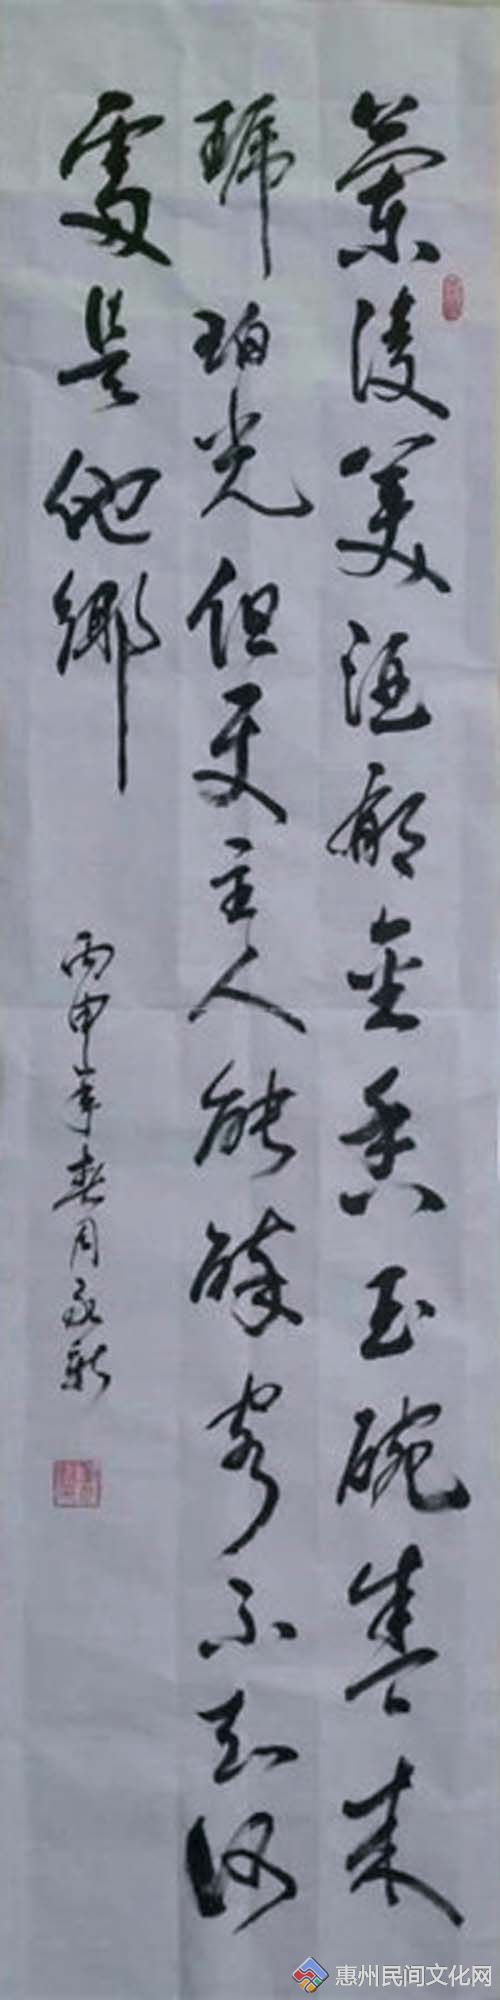 蘭陵美酒郁金香玉碗盛来
琥珀光但更主人能醉客不知何
處是他鄉
丙申年春月永新
惠州民间文化网